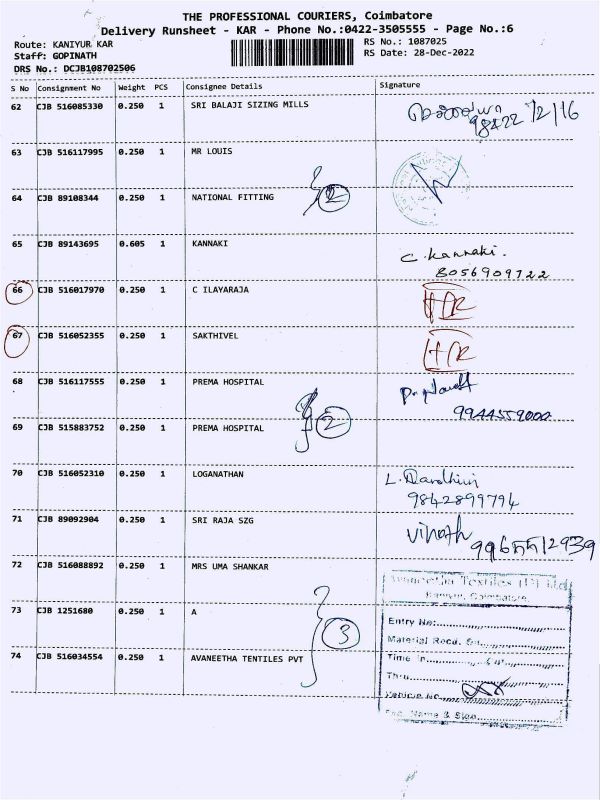 THE PROFESSIONAL COURIERS, Coimbatore
Delivery Runsheet - KAR - Phone No.:0422-3505555 - Page No.:6
Route: KANIYUR KAR
Staff: GOPINATH
DRS No.: DCJB108702506
RS No.: 1087025
RS Date: 28-Dec-2022
S No Consignment No Weight PCS Consignee Details Signature
62 CJB 516085330 0.250 1 SRI BALAJI SIZING MILLS
63 CJB 516117995 0.250 1 MR LOUIS
64 CJB 89108344 0.250 1 NATIONAL FITTING
2
65 CJB 89143695 0.605 1 KANNAKI C. Kannaki.
8056909722
66 CJB 516017970 0.250 1 C ILAYARAJA
67 CJB 516052355 0.250 1 SAKTHIVEL
68 CJB 516117555 0.250 1 PREMA HOSPITAL
9944559000
2
69 CJB 515883752 0.250 1 PREMA HOSPITAL
70 CJB 516052310 0.250 1 LOGANATHAN
9842899794
71 CJB 89092904 0.250 1 SRI RAJA SZG Vinoth
9965512939
72 CJB 516088892 0.250 1 MRS UMA SHANKAR
Avaneetha Textiles (P) Ltd
Kaniyur, Coimbatore.
73 CJB 1251680 0.250 1 A
3
Entry No:
Material Recd.
74 CJB 516034554 0.250 1 AVANEETHA TENTILES PVT
Time In
Vehicle No
Name & Sign